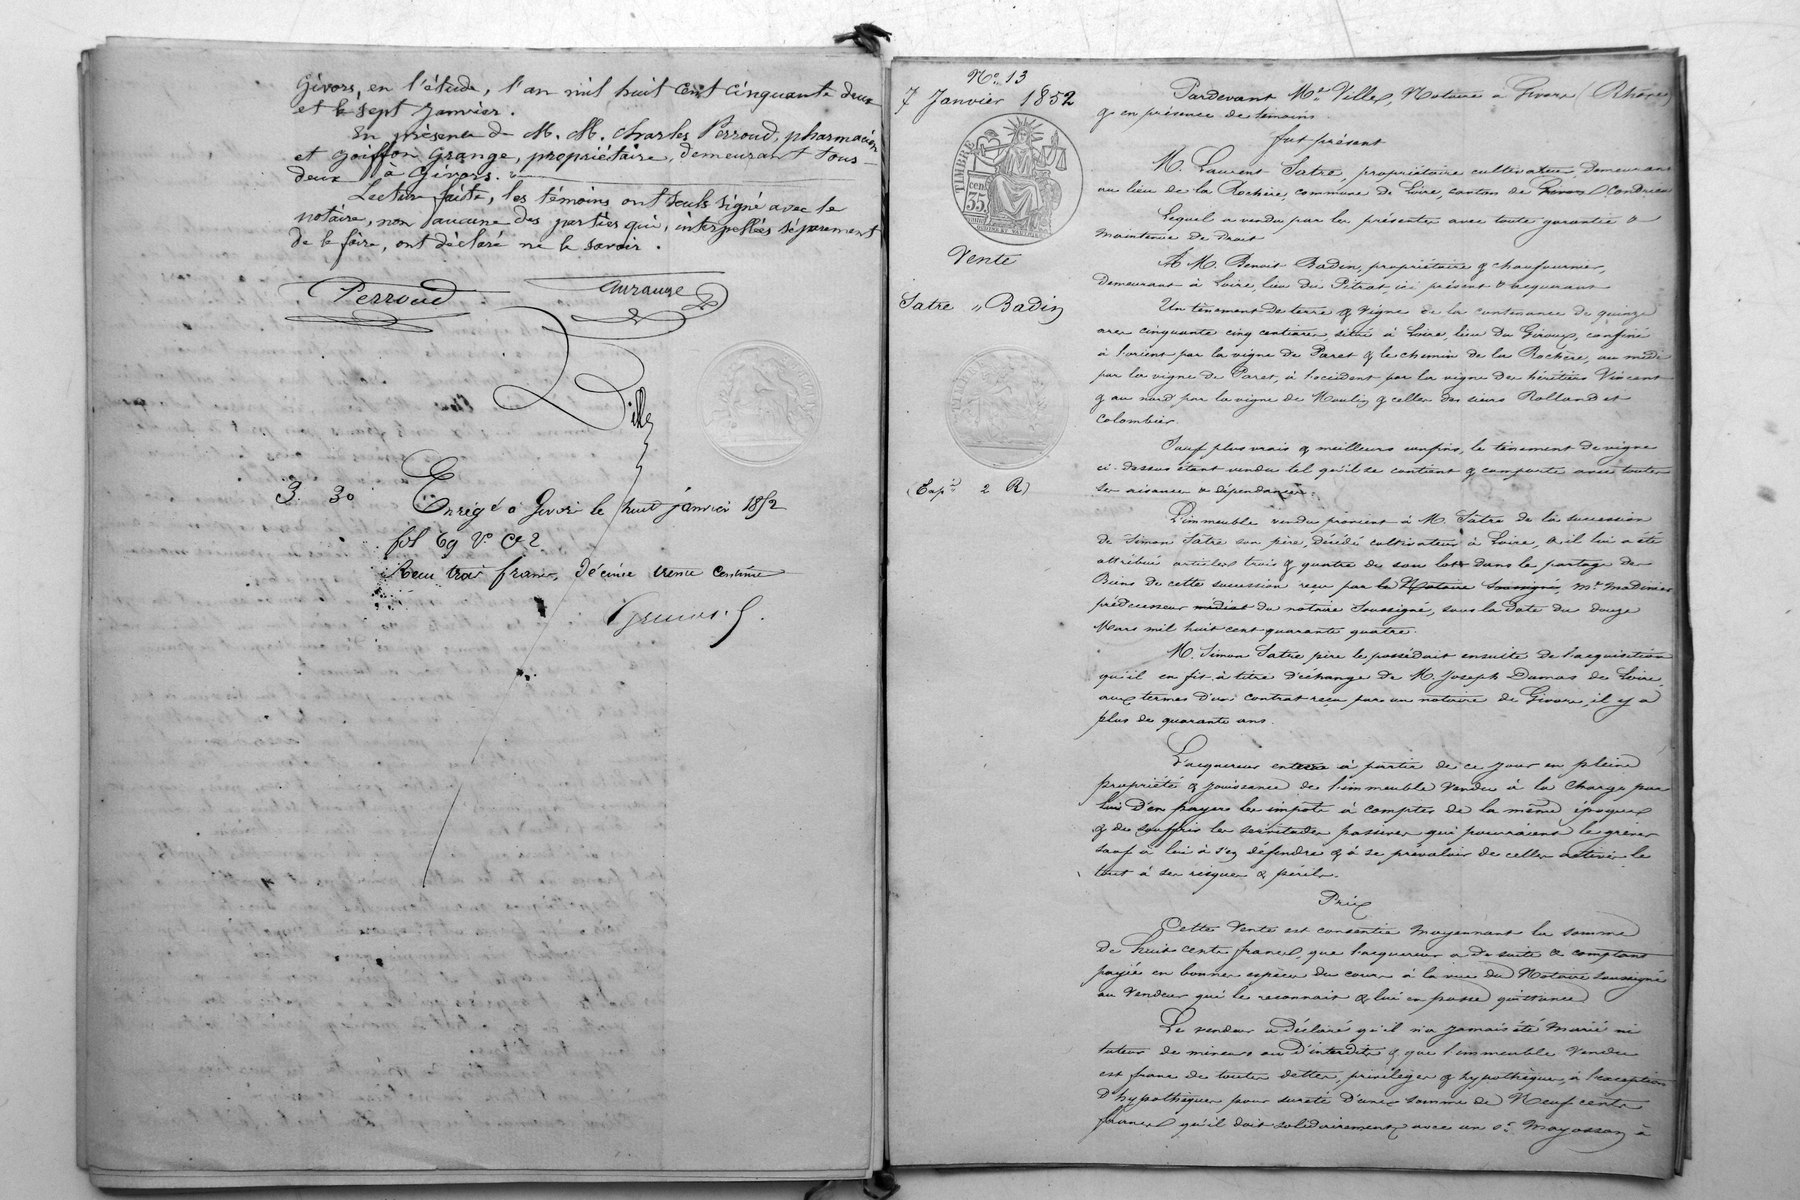 Givors, en l'étude, l'an mil huit cent cinquante deux
et le sept Janvier.
En présence de M. M. Charles Perroud, pharmacien
et Goiffon Grange, propriétaire, demeurant tous
deux à Givors.
Lecture faite, les témoins ont seuls signé avec le
notaire, non aucune des parties qui, interpellées séparément
de le faire, ont déclaré ne le savoir.
Perroud
Ville
3. 30
Enregé à Givors le huit janvier 1852
fol 69 Vo Ce 2
Reçu trois francs, décime trente centimes
No 13
7 Janvier 1852
TIMBRE
35 cen
Vente
Satre " Badin
(Expon 2 R)
Pardevant Me Ville, Notaire à Givors (Rhône)
& en présence de témoins.
fut présent
M. Laurent Satre, propriétaire cultivateur, demeurant
au lieu de la Rochère, commune de Loire, canton de Givors Condrieu
Lequel a vendu par les présentes avec toute garantie &
maintenue de droit
A M. Benoit Badin, propriétaire & chaufournier,
demeurant à Loire, lieu du Pétrat ici présent & acquérant
Un tènement de terre & Vigne de la contenance de quinze
ares cinquante cinq centiares, situé à Loire, lieu du Giroux, confiné
à l'orient par la vigne de Paret & le chemin de la Rochère, au midi
par la vigne de Paret, à l'occident par la vigne des héritiers Vincent
& au nord par la vigne de Moulin & celles des sieurs Rolland et
Colombier.
Sauf plus vrais & meilleurs confins, le tènement de vigne
ci-dessus étant vendu tel qu'il se contient & comporte avec toutes
ses aisances & dépendances.
L'immeuble vendu provient à M. Satre de la succession
de Simon Satre son père, décédé cultivateur à Loire, & il lui a été
attribué articles trois & quatre de son lot dans le partage des
Biens de cette succession reçu par le Notaire Soussigné, Me Madinier
prédécesseur médiat du notaire soussigné, sous la date du douze
Mars mil huit cent quarante quatre.
M. Simon Satre père le possédait ensuite de l'acquisition
qu'il en fit à titre d'échange de M. Joseph Damas de Loire,
aux termes d'un contrat reçu par un notaire de Givors, il y a
plus de quarante ans.
L'acquéreur entrera à partir de ce jour en pleine
propriété & jouissance de l'immeuble vendu à la charge par
lui d'en payer les impots à compter de la même époque
& de souffrir les servitudes passives qui pourraient le grever
sauf à lui à s'en défendre & à se prévaloir de celles actives le
tout à ses risques & périls.
Prix
Cette Vente est consentie moyennant la somme
de huit cents francs, que l'acquéreur a de suite & comptant
payée en bonnes espèces du cours à la vue du Notaire soussigné
au Vendeur qui le reconnait & lui en passe quittance
Le vendeur a déclaré qu'il n'a jamais été marié ni
tuteur de mineurs ou d'interdits & que l'immeuble vendu
est franc de toutes dettes, privilèges & hypothèques, à l'exception
d'hypothèques pour sureté d'une somme de Neuf cents
francs qu'il doit solidairement avec un sr Mayosson à